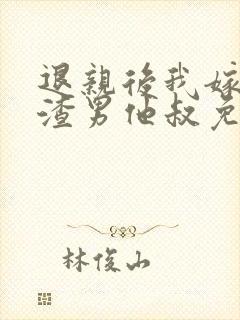 退親後我嫁
渣男他叔免
林俊山